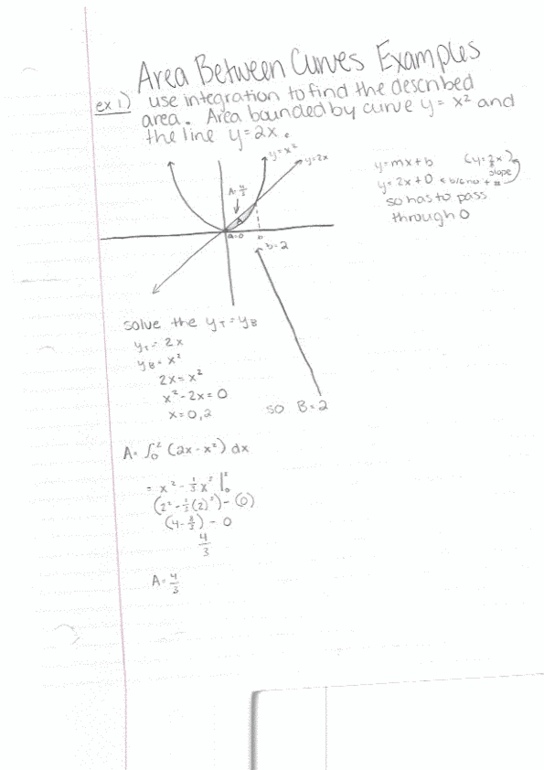 Area Between Curves Examples
ex 1) use integration to find the described
area. Area bounded by curve y = x² and
the line y = 2x.
y = x²
y = 2x
A = 4/3
a=0
b
b=2
y = mx + b
slope
y = 2x + 0 < b/c no + #
so has to pass
through 0
solve the y_T = y_B
y_T = 2x
y_B = x²
2x = x²
x² - 2x = 0
x = 0, 2
so B = 2
A = ∫₀² (2x - x²) dx
= x² - 1/3 x³ |₀²
(2² - 1/3 (2)³) - (0)
(4 - 8/3) - 0
4/3
A = 4/3